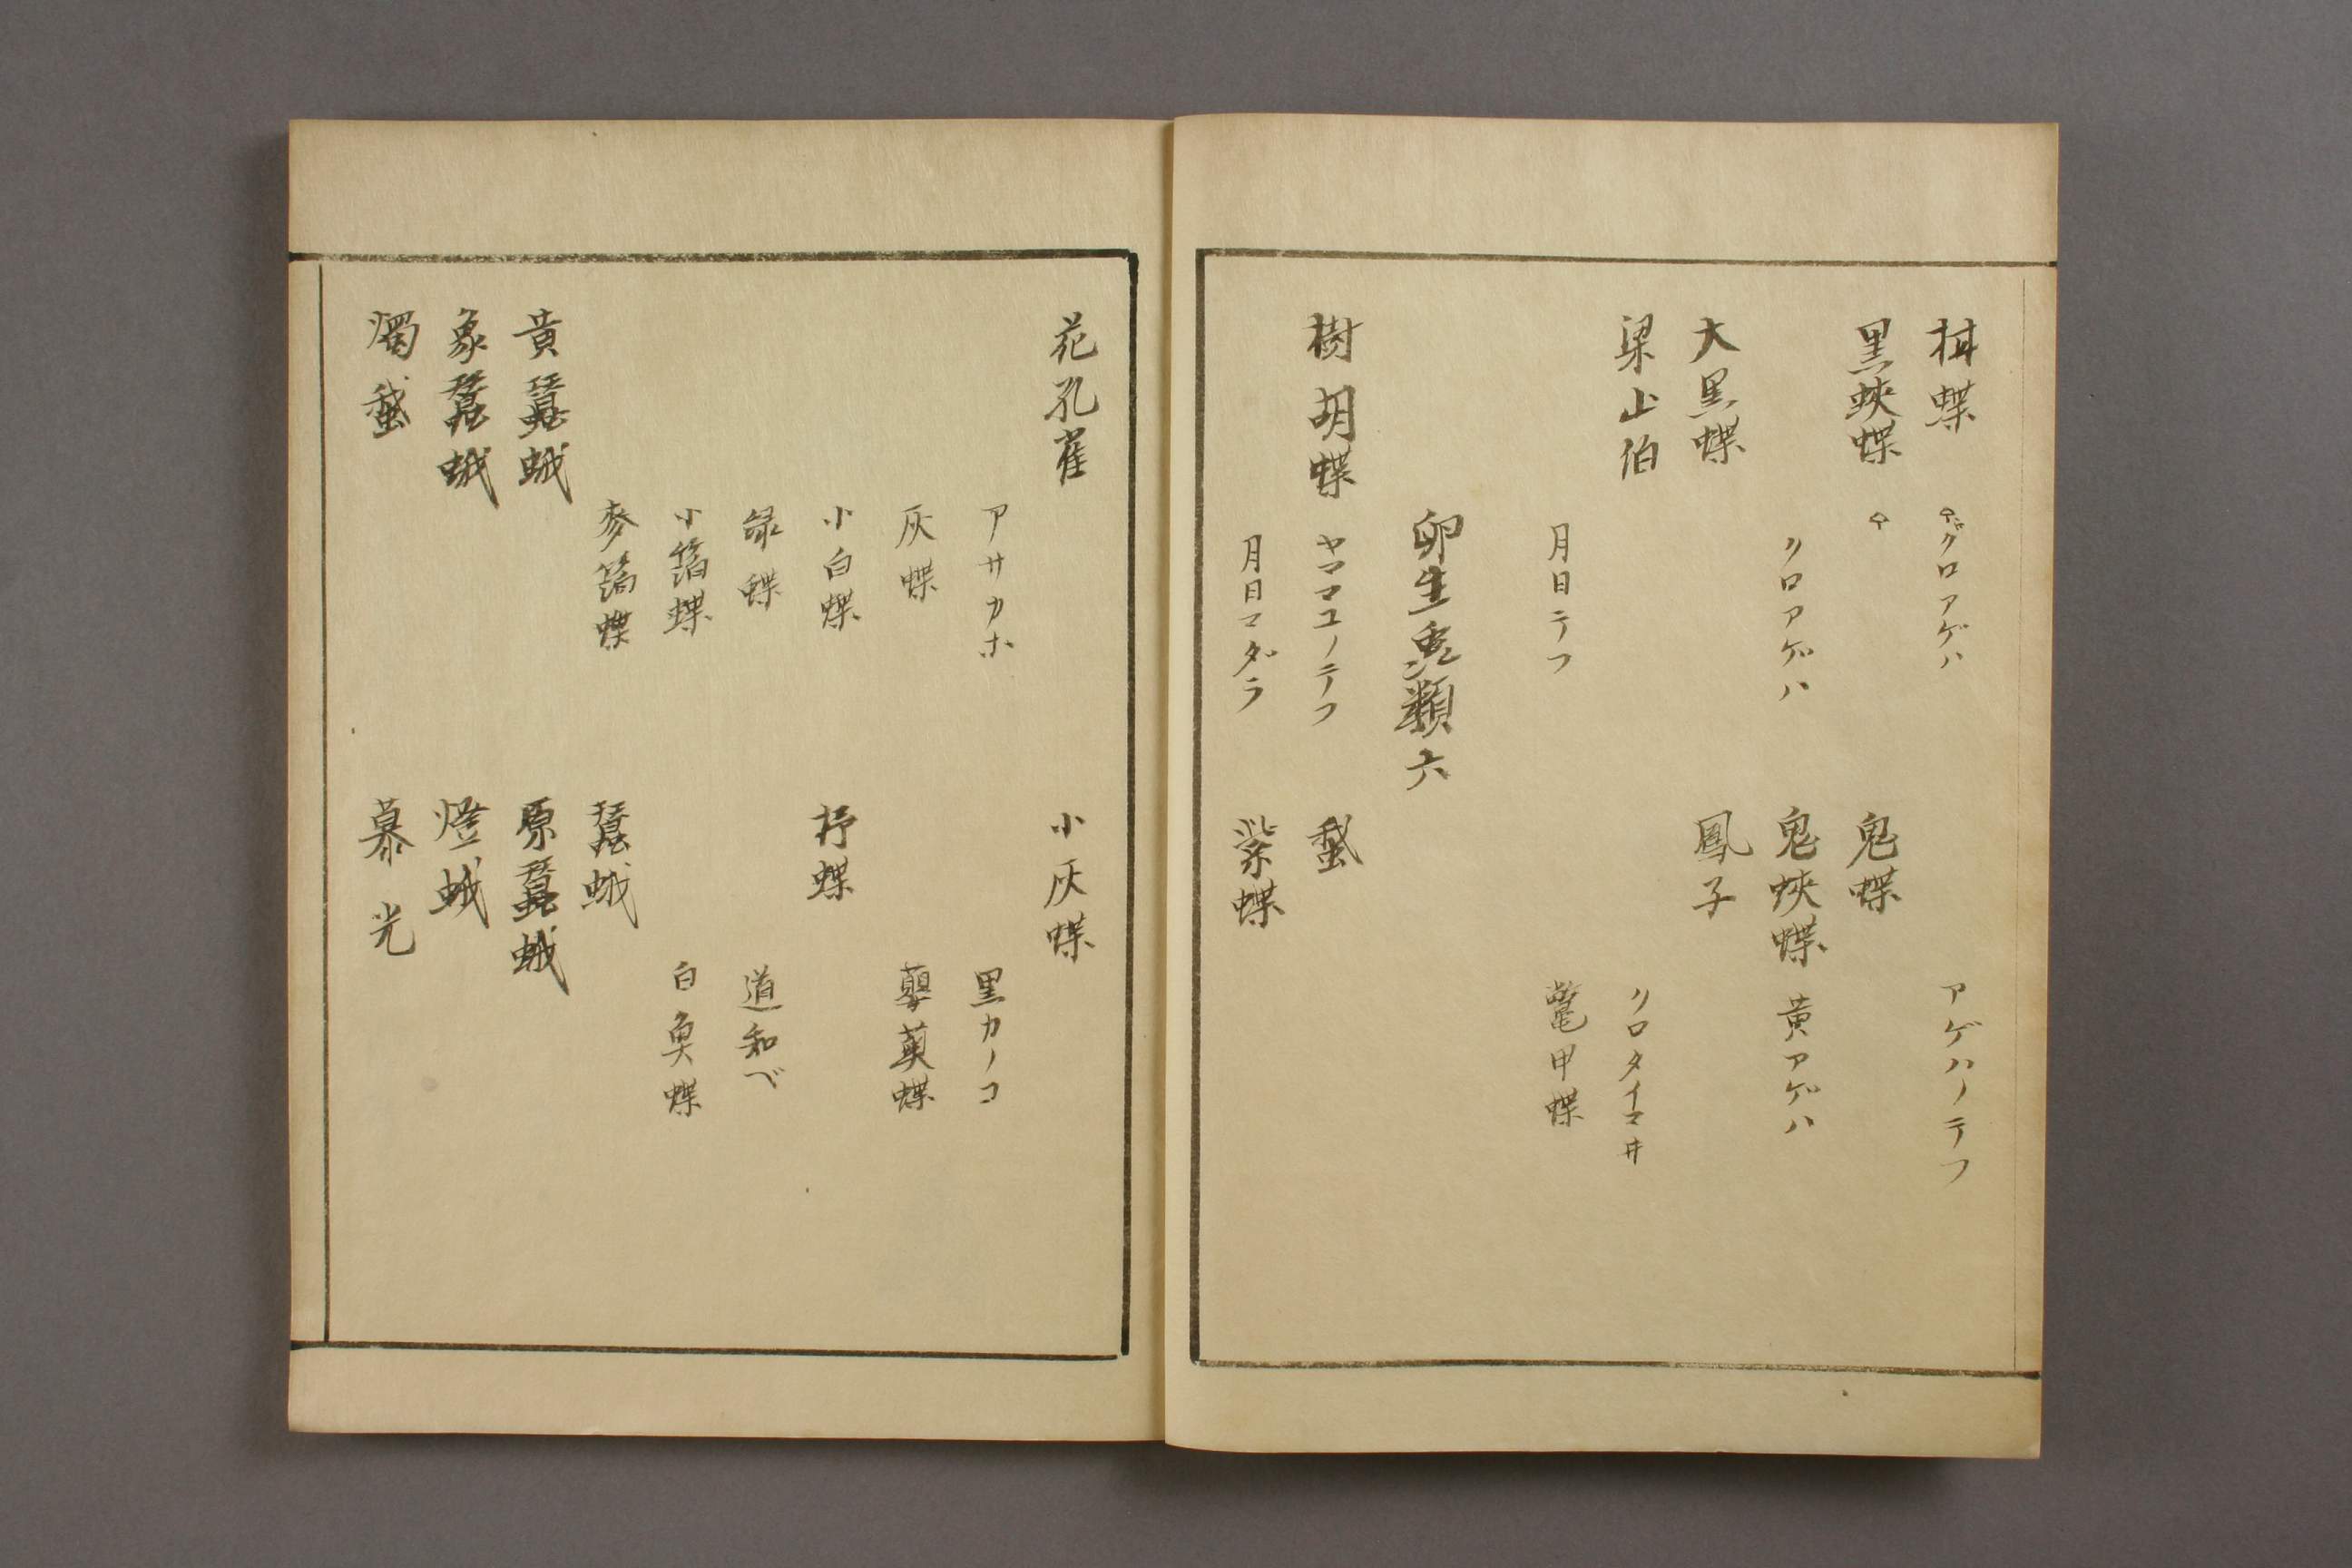 柑蝶
♀クロアゲハ
アゲハノテフ
黒蛺蝶
♀
鬼蝶
クロアゲハ
鬼蛺蝶
黄アゲハ
大黒蝶
鳳子
梁山伯
クロタイマヰ
月日テフ
鼈甲蝶
卵生蟲類六
樹胡蝶
ヤママユノテフ
蛾
月日マダラ
紫蝶
花孔雀
小灰蝶
アサカホ
黒カノコ
灰蝶
蘡薁蝶
小白蝶
杼蝶
緑蝶
道和べ
小蝶
白奥蝶
麥蝶
蠶蛾
黄蠶蛾
原蠶蛾
象蠶蛾
燈蛾
燭蛾
慕光